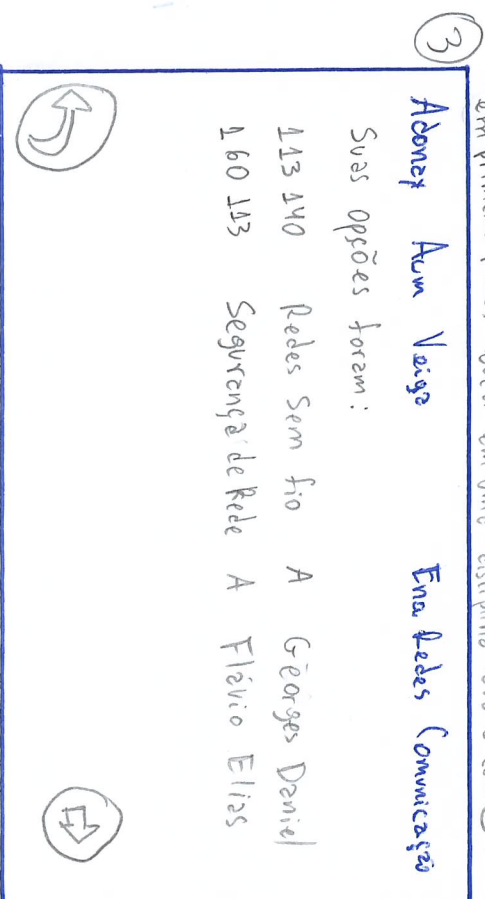 3
Adonay Aum Veiga Eng Redes Comunicação
Suas opções foram:
113 140 Redes Sem fio A Georges Daniel
160 113 Segurança de Rede A Flávio Elias